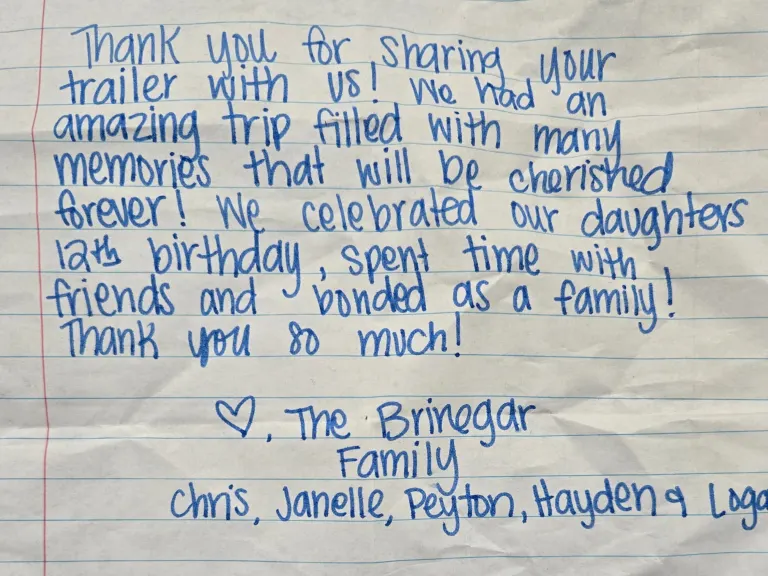 Thank you for sharing your
trailer with us! We had an
amazing trip filled with many
memories that will be cherished
forever! We celebrated our daughters
12th birthday, spent time with
friends and bonded as a family!
Thank you so much!
♡, The Brinegar
Family
Chris, Janelle, Peyton, Hayden & Loga